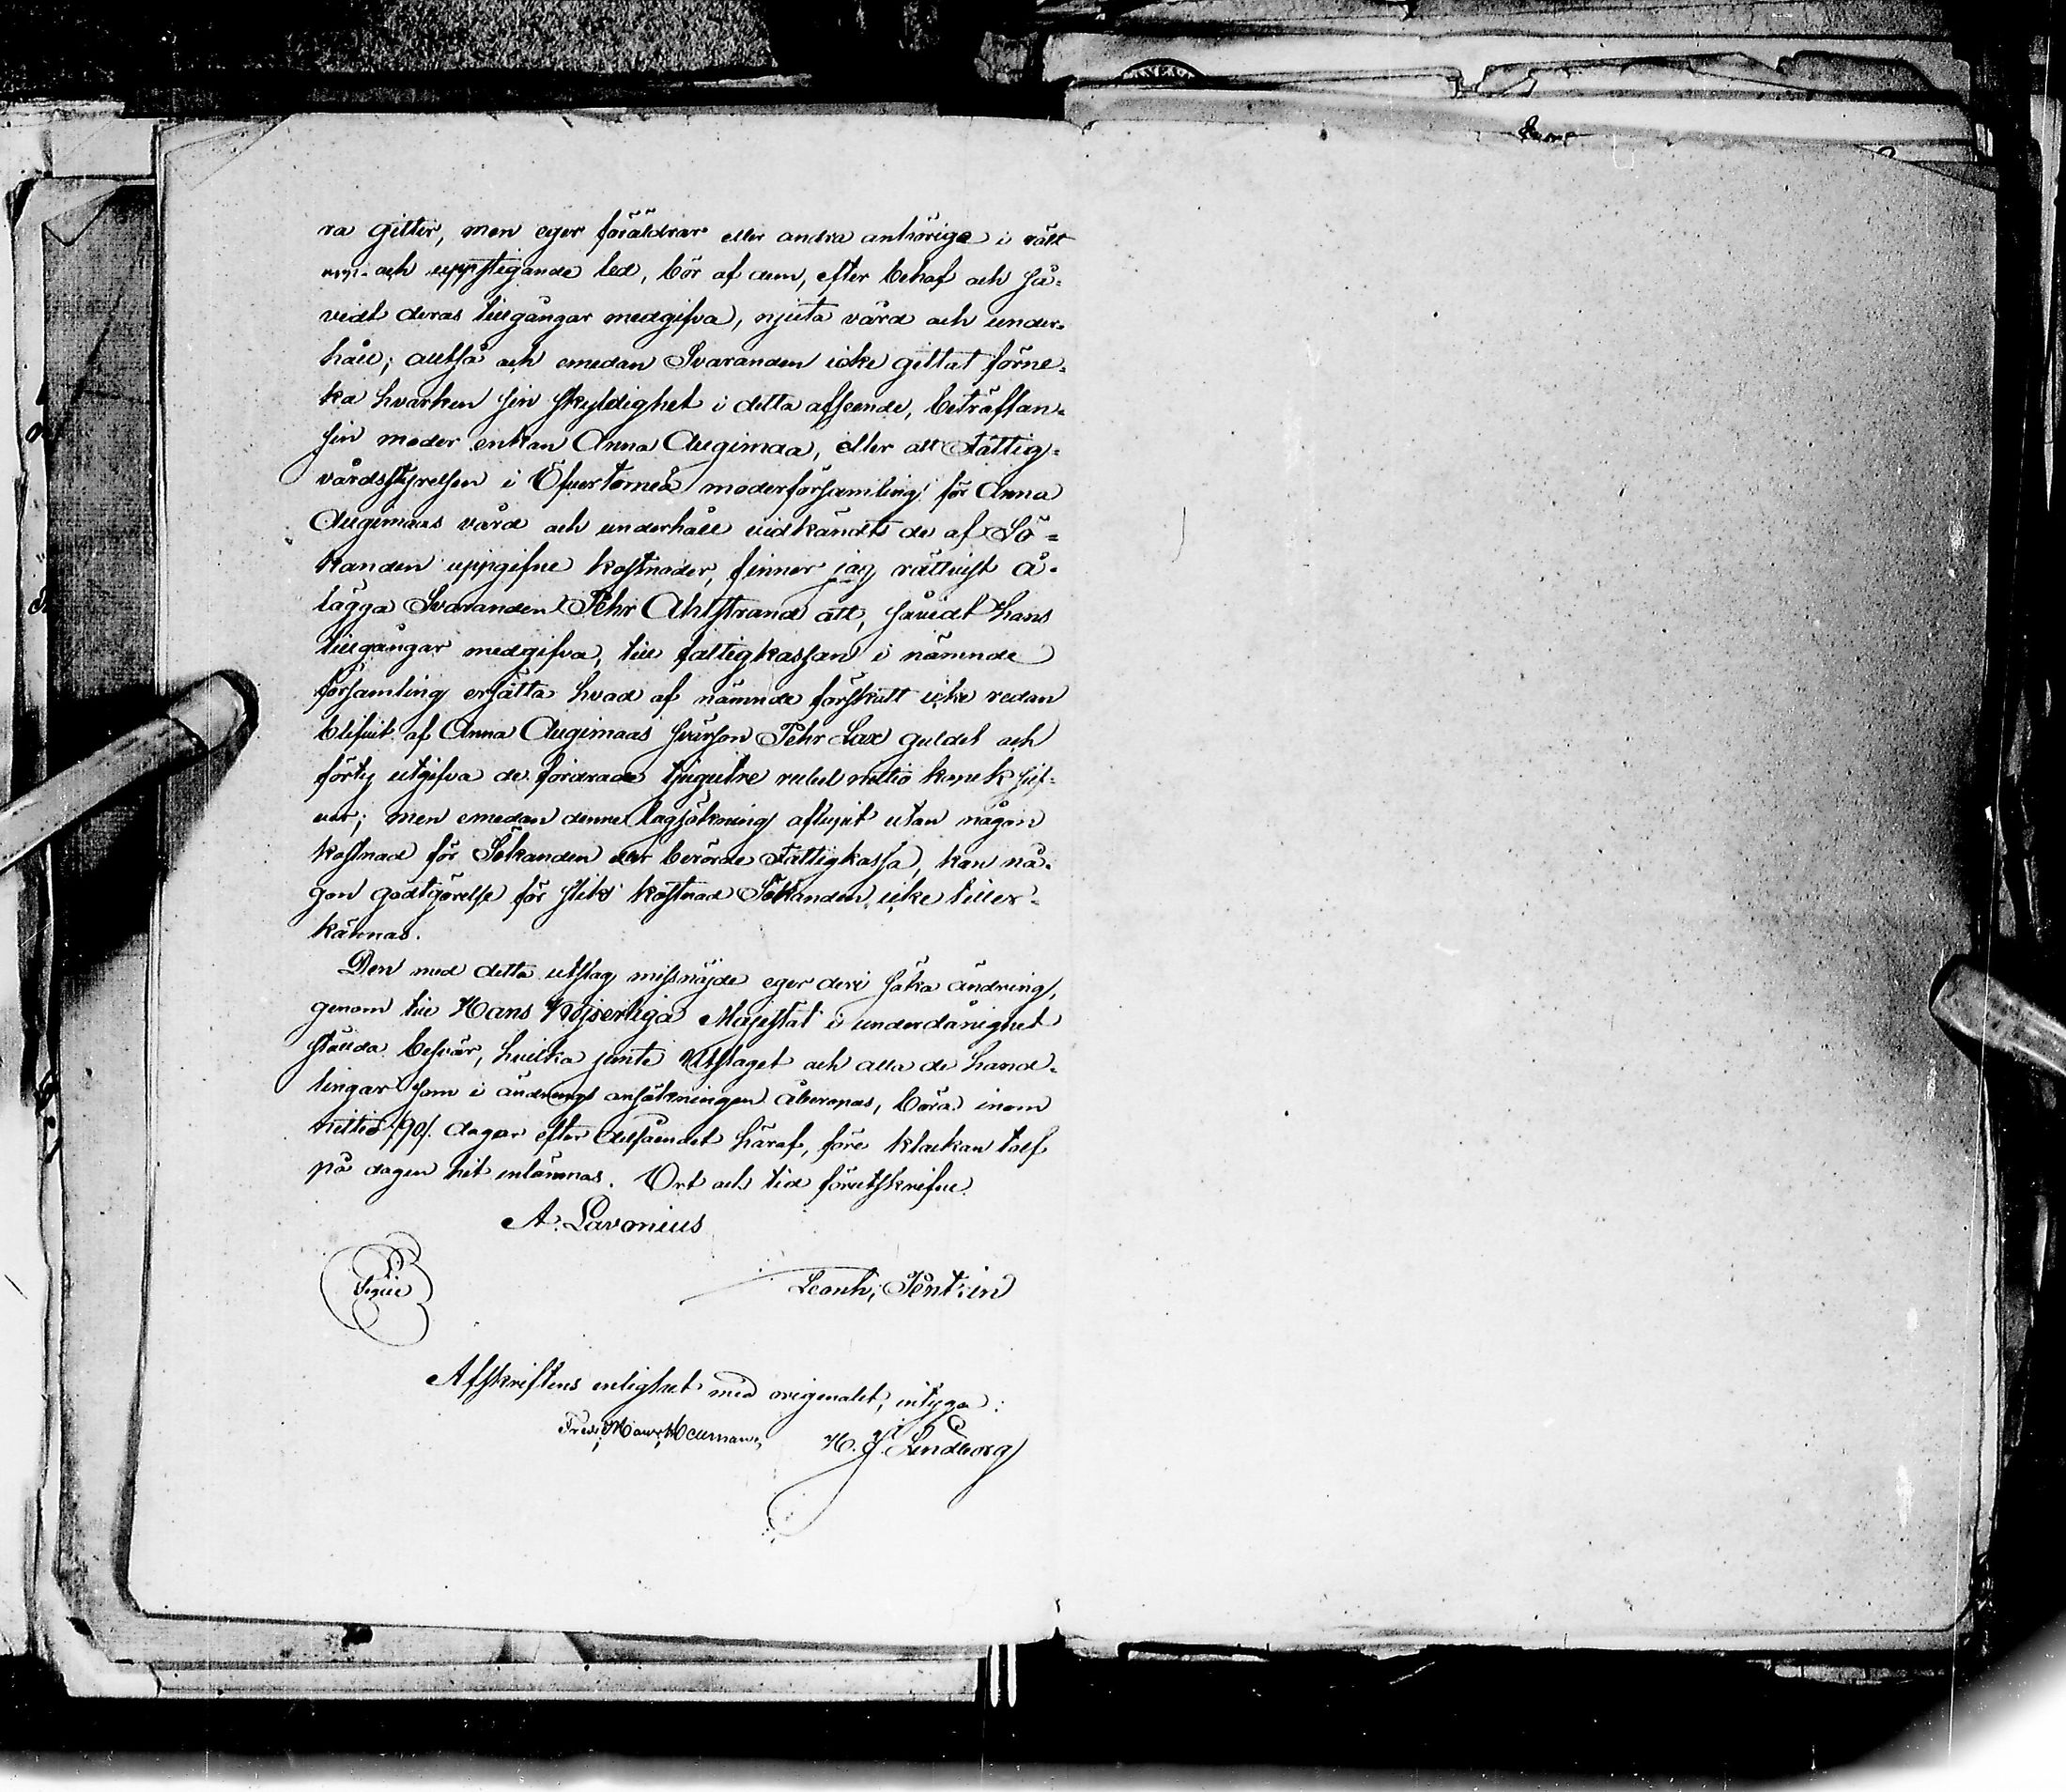 ra gitter, men eger föräldrar eller andra anhöriga i rätt
upp- och uppstigande led, bör af dem, efter behof och så-
vidt deras tillgångar medgifva, njuta vård och under-
håll; alltså och emedan Svaranden icke gittat förne-
ka hvarken sin skyldighet i detta afseende, beträffan-
sin moder enkan Anna Augimaa, eller att Fattig-
vårdsstyrelsen i Öfvertorneå moderförsamling för Anna
Augimaas vård och underhåll vidkändts de af Sö-
kanden uppgifne kostnader, finner jag rättvist å-
lägga Svaranden Pehr Ahlstrand att, såvidt hans
tillgångar medgifva, till fattigkassan i nämnde
församling ersätta hvad af nämnde förskott icke redan
blifvit af Anna Augimaas svärson Pehr Lax guldet och
förty utgifva de fordrade tjugutre rubel nittio kopek silf-
ver; men emedan denne lagsökning aflupit utan någon
kostnad för Sökanden eller berörde Fattigkassa, kan nå-
gon godtgörelse för slik kostnad Sökanden icke tiller-
kännas.
Den med detta utslag missnöjde eger deri söka ändring,
genom till Hans Kejserliga Majestät i underdånighet
stälda besvär, hvilka jemte Utslaget och alla de hand-
lingar som i ändrings ansökningen åberopas, böra inom
nittio /90/ dagar efter delfåendet häraf, före klockan tolf
på dagen hit inlämnas. Ort och tid förutskrifne.
A. Lavonius
Leonh: Pentzin
Afskriftens enlighet med originalet, intyga:
H. J. Lindborg